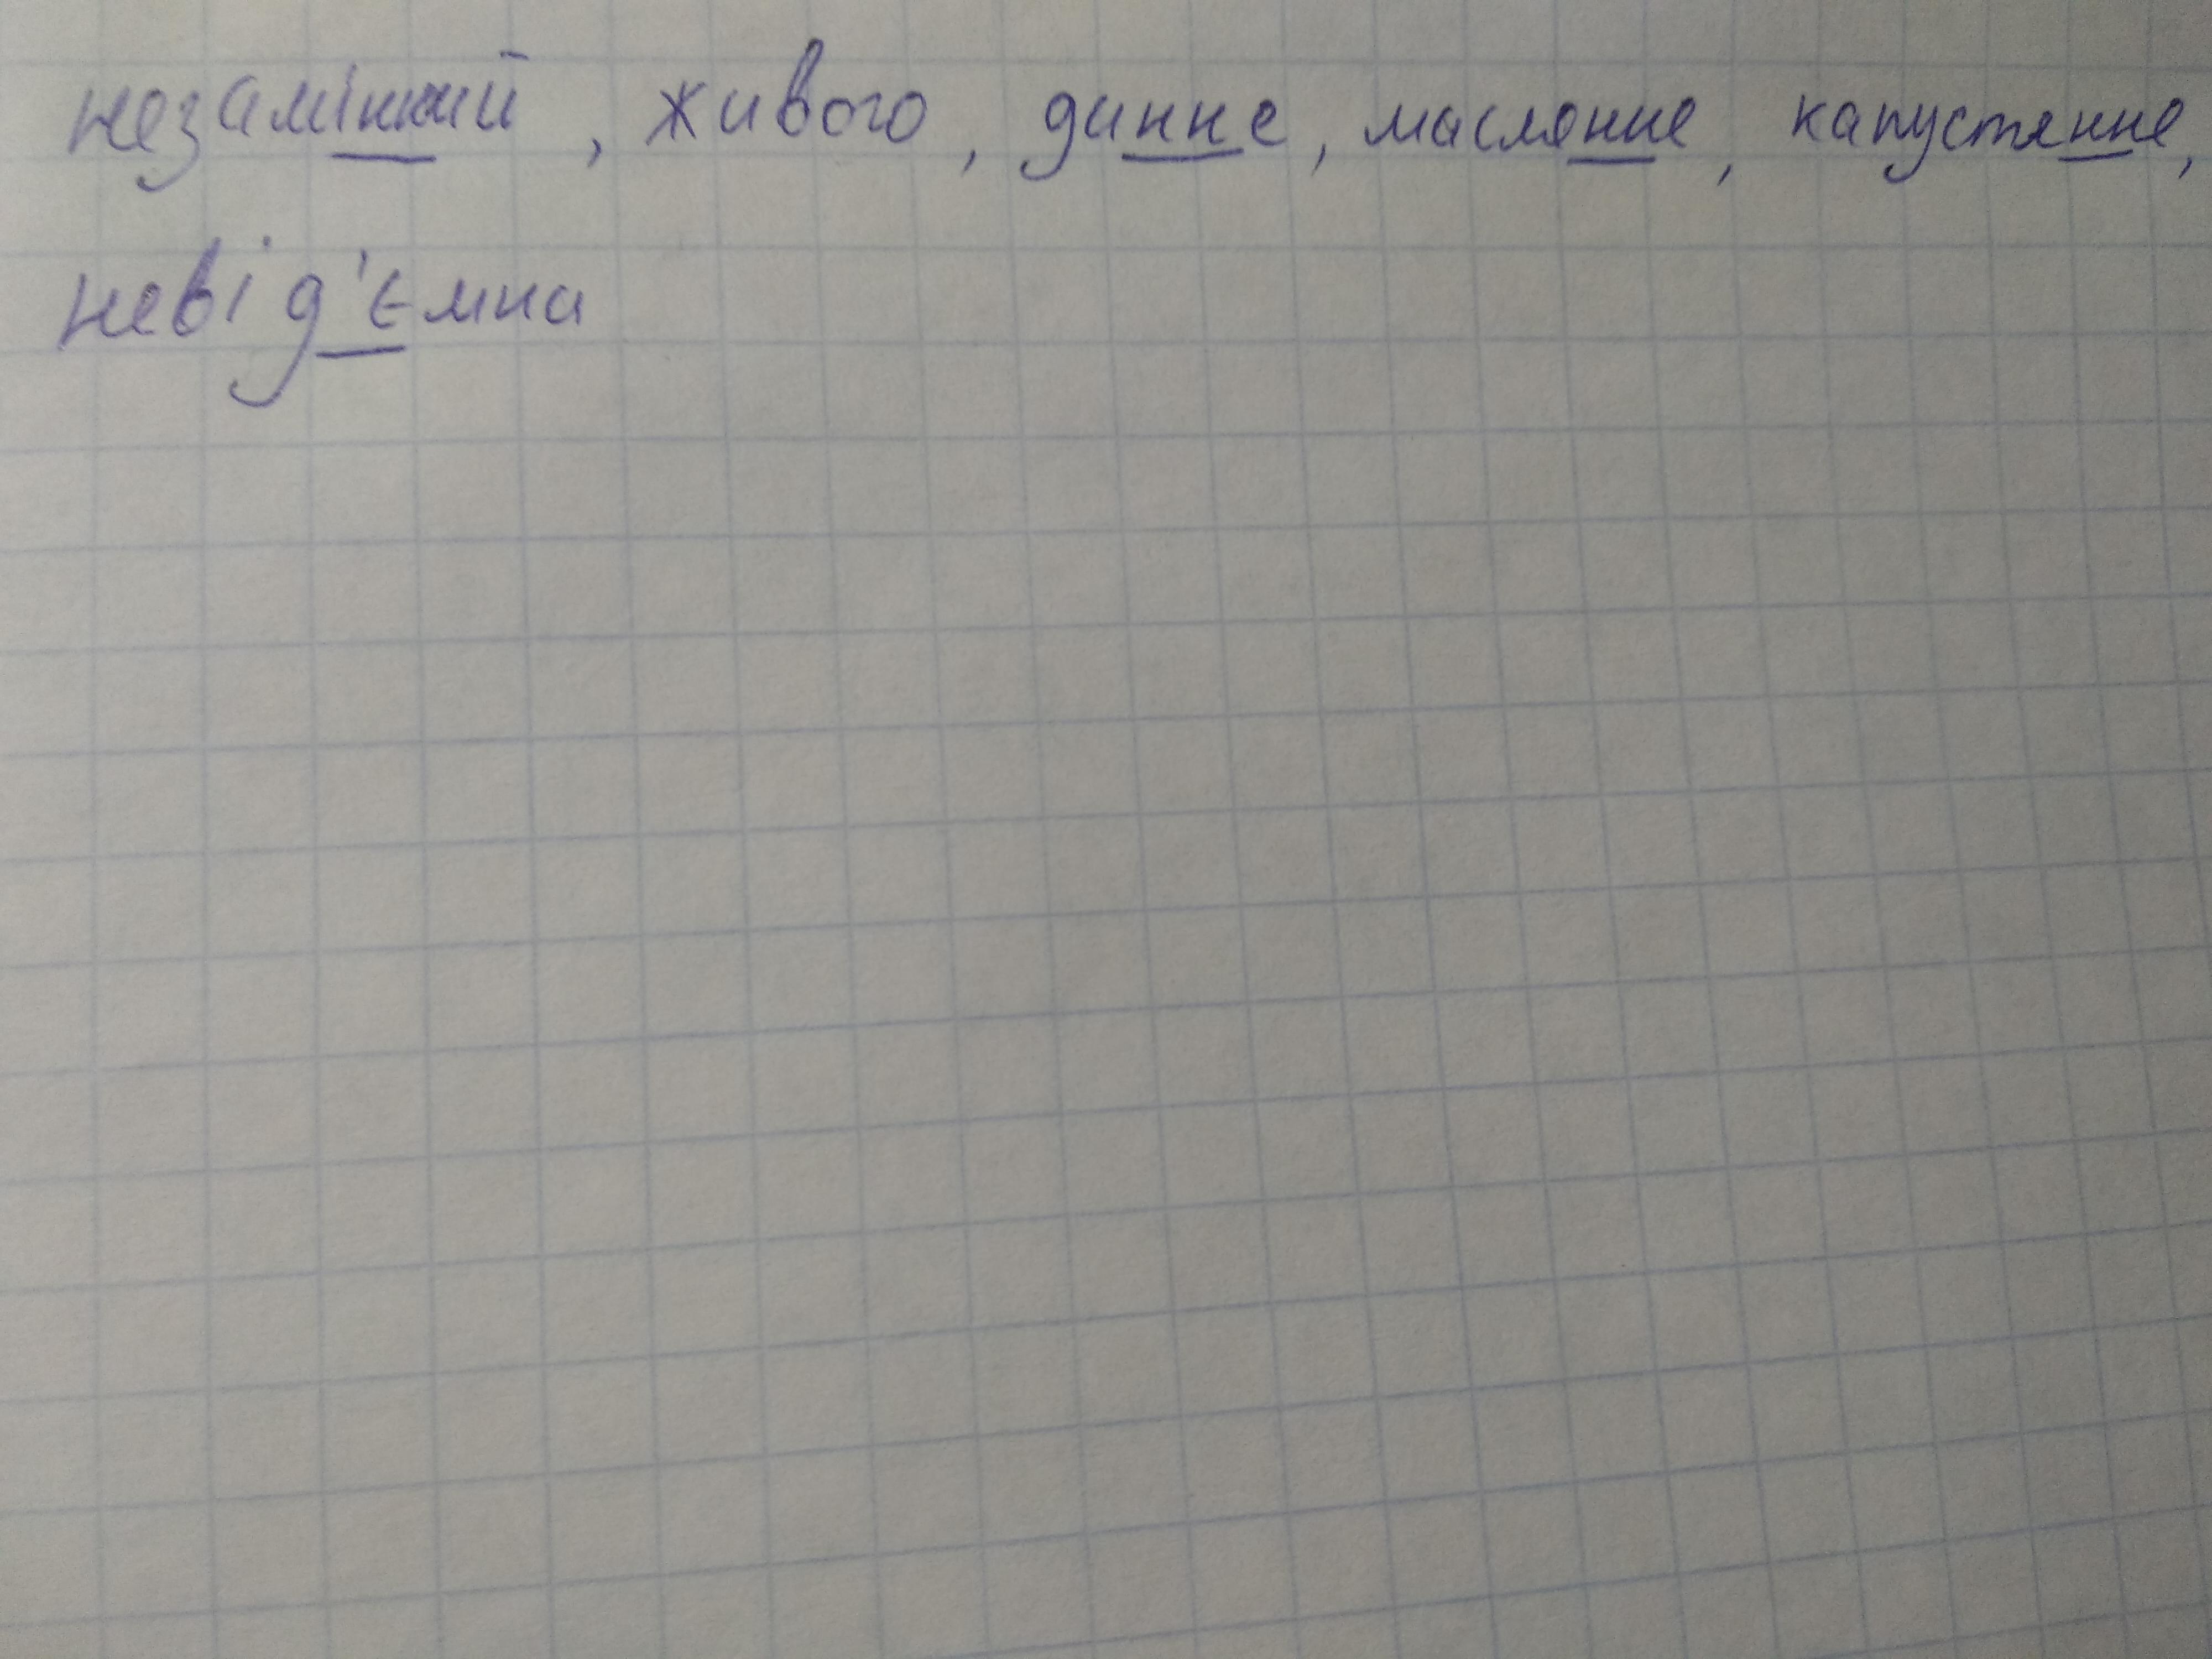 незамінний, живого, динне, маслянне, капустянне,
невід'ємна